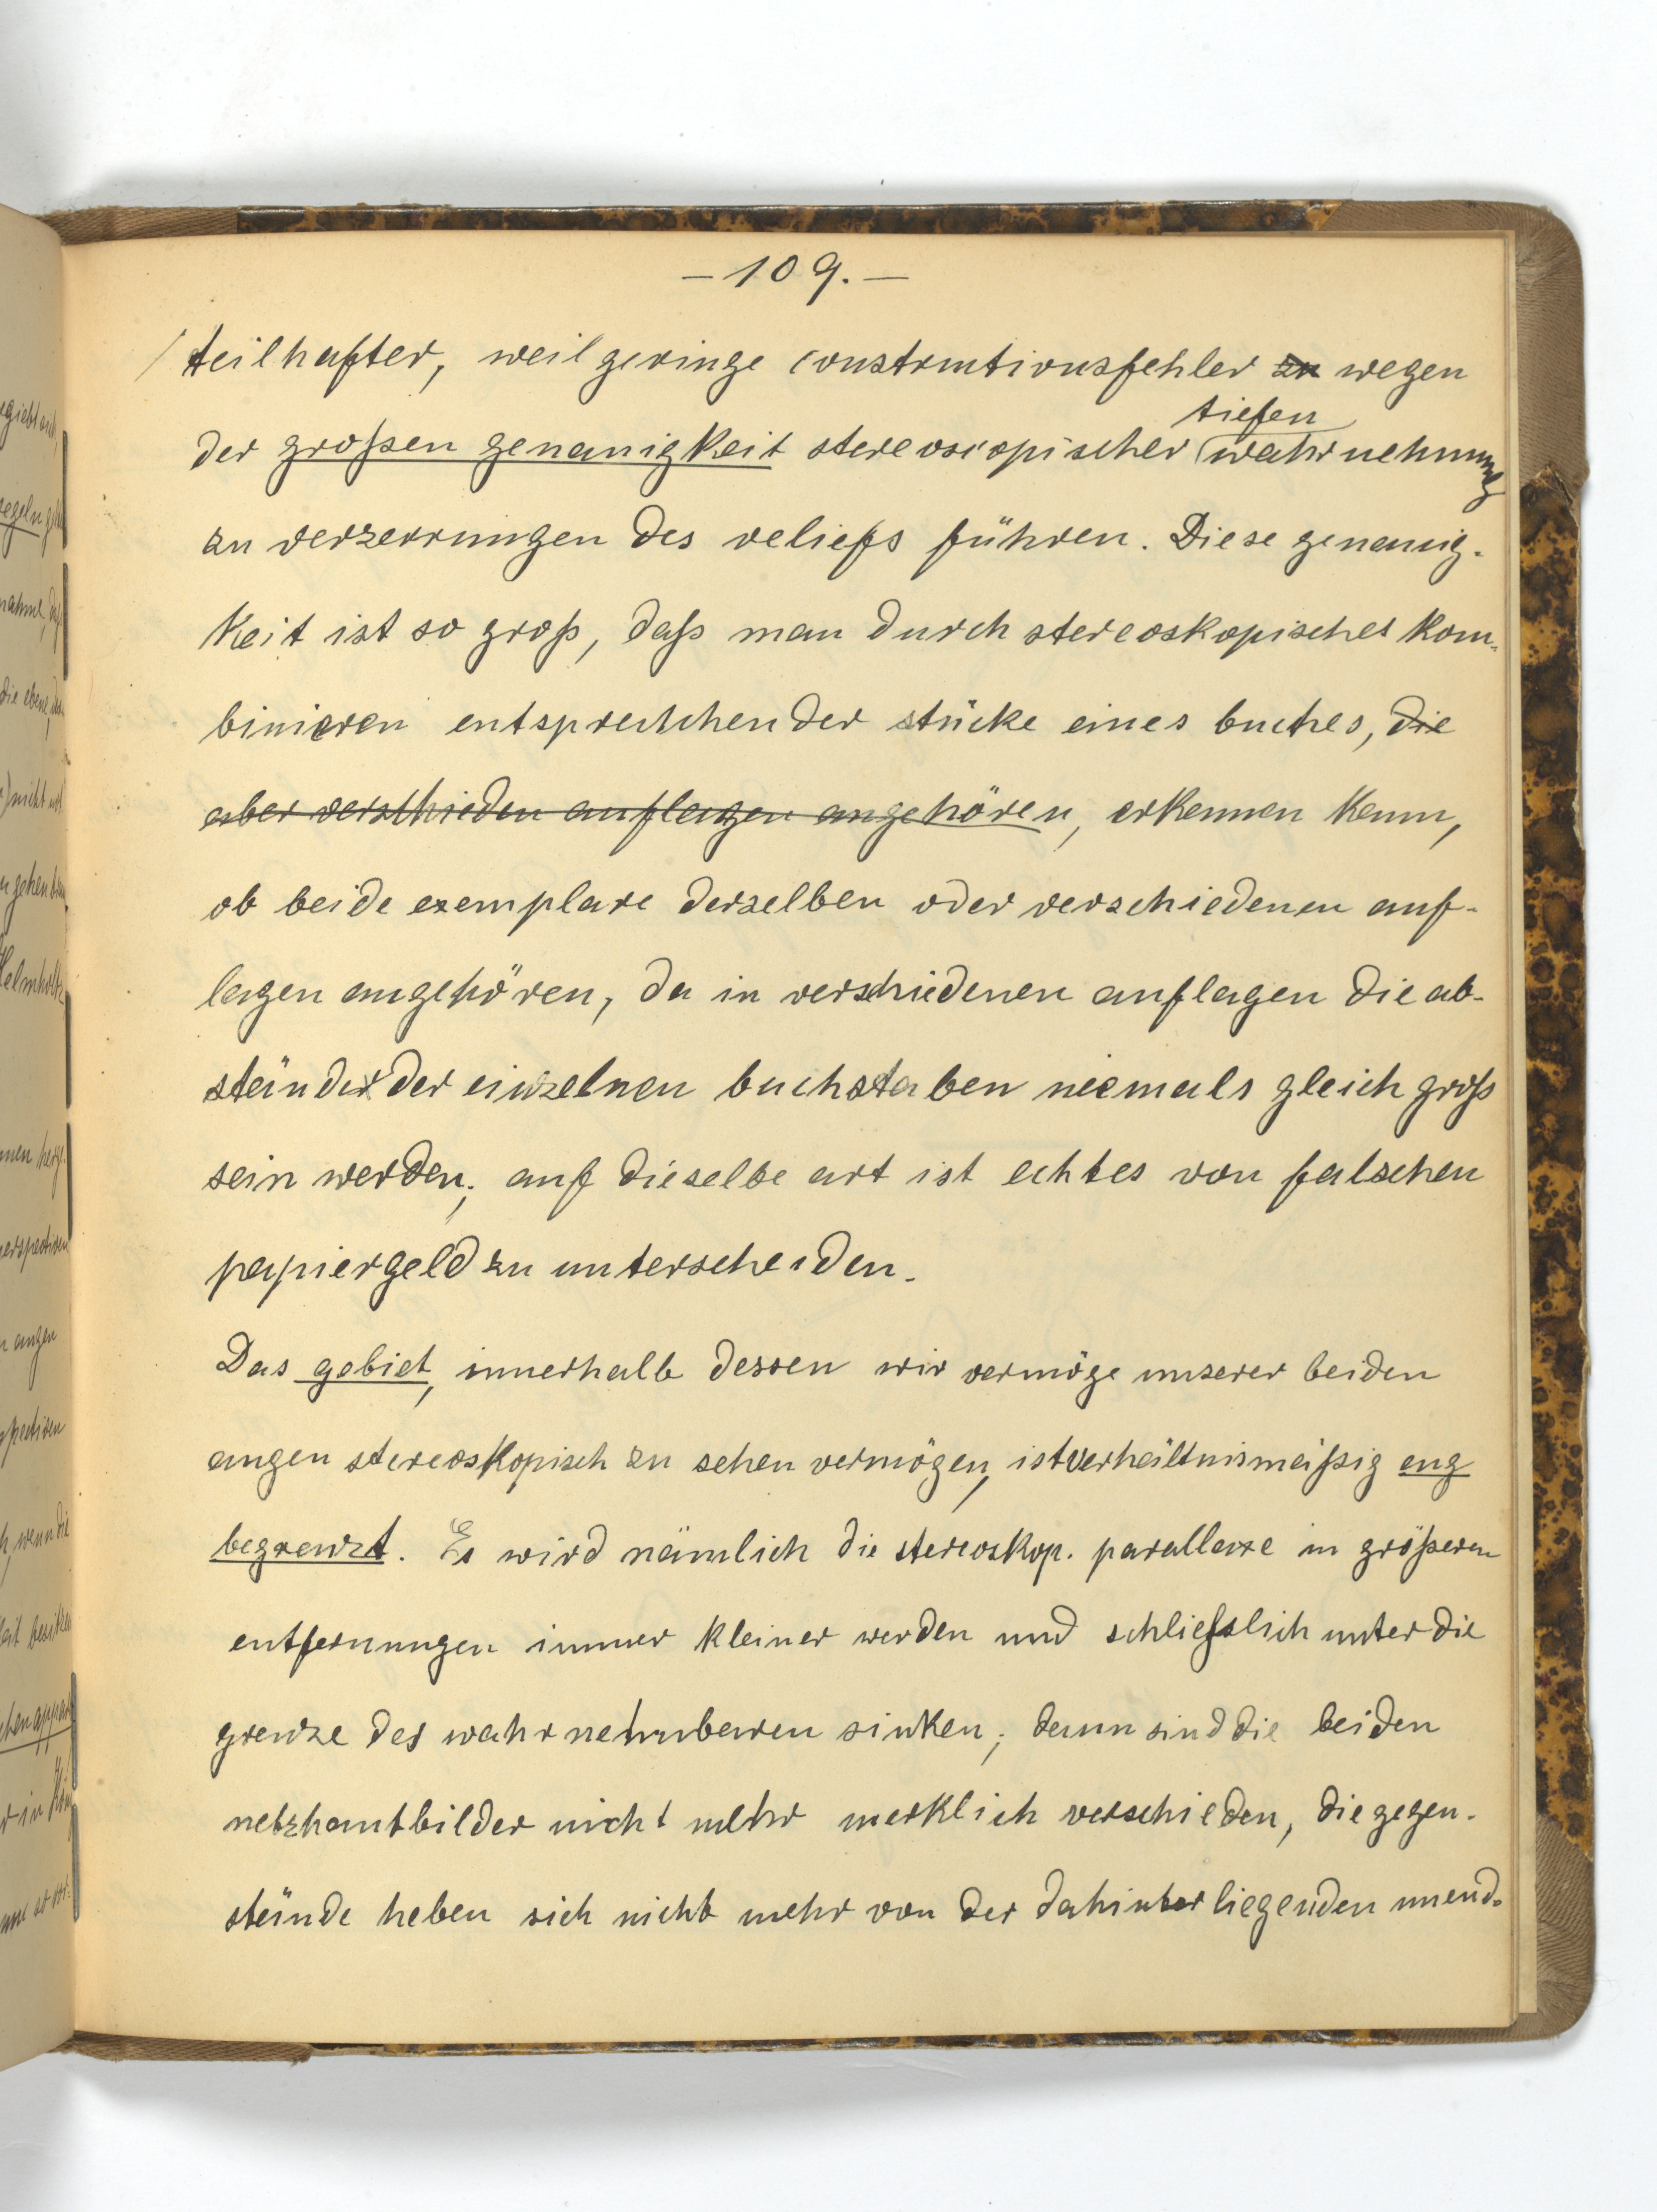 – 109. –
teilhafter, weil geringe constructionsfehler zu wegen
tiefen
der großen genauigkeit stereoscopischer wahrnehmung
zu verzerrungen des reliefs führen. Diese genauig-
keit ist so groß, daß man durch stereoskopisches kom-
binieren entsprechender stücke eines buches, die
aber verschieden auflagen angehören, erkennen kann,
ob beide exemplare derselben oder verschiedenen auf-
lagen angehören, da in verschiedenen auflagen die ab-
stände der einzelnen buchstaben niemals gleich groß
sein werden; auf dieselbe art ist echtes von falschen
papiergeld zu unterscheiden.
Das gebiet, innerhalb dessen wir vermöge unserer beiden
augen stereoskopisch zu sehen vermögen, ist verhältnismäßig eng
begrenzt. Es wird nämlich die stereoskop. parallaxe in größeren
entfernungen immer kleiner werden und schließlich unter die
grenze des wahrnehmbaren sinken; dann sind die beiden
netzhautbilder nicht mehr merklich verschieden, die gegen-
stände heben sich nicht mehr von der dahinter liegenden unend-